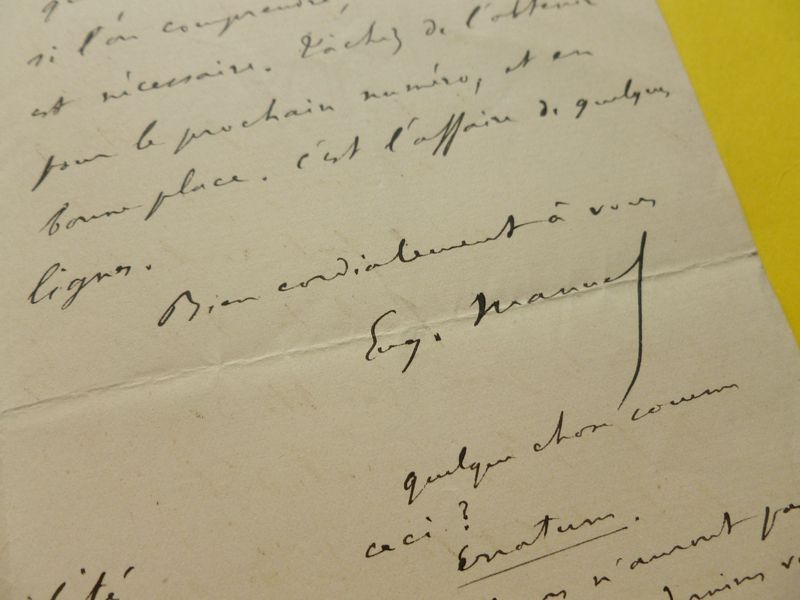 si l'on comprendra,
est nécessaire. Tâchez de l'obtenir
pour le prochain numéro, et en
bonne place. C'est l'affaire de quelques
lignes.
Bien cordialement à vous
Eug. Manuel
quelque chose comme
ceci ?
Erratum.
n'auront pas